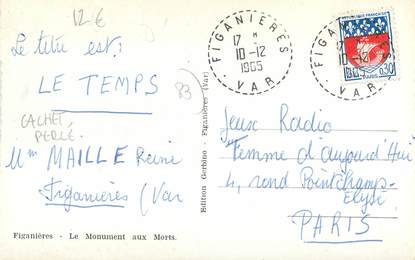 12 €
Le titre est :
LE TEMPS
83
CACHET
PERLÉ.
Mme MAILLE Reine
Figanières (Var
Figanières - Le Monument aux Morts.
Edition Gerbino - Figanières (Var)
FIGANIÈRES
17 H
10-12
1965
VAR
FIGANIÈRES
17 H
10-12
1965
VAR
REPUBLIQUE FRANÇAISE
0,30
PARIS
Jeux Radio
"Femme d'aujourd'Hui"
4, rond Point champ-
Elysé
PARIS